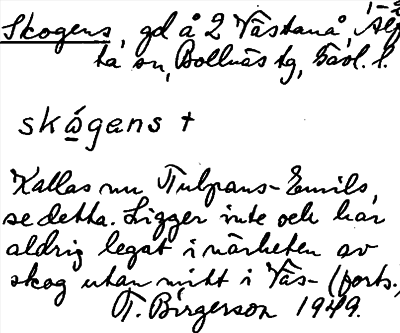 Skogens, gd å 2 Västanå, 1-2 Alf
ta sn, Bollnäs tg, Gävl. l.
skògens +
Kallas nu Tulpans-Emils,
se detta. Ligger inte och har
aldrig legat i närheten av
skog utan mitt i Väs- (forts.)
T. Birgerson 1949.